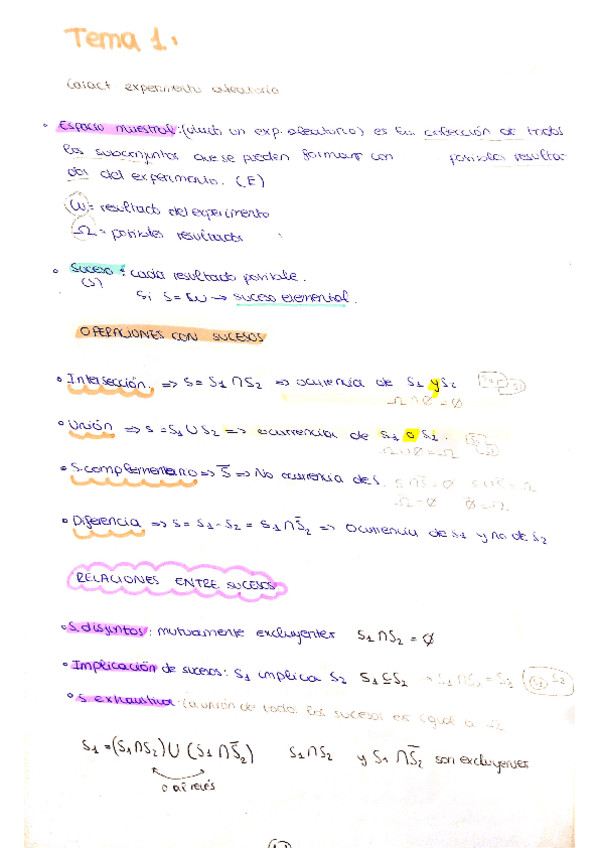 Tema 1.
Caract experimento aleatorio
• Espacio muestral: (dado un exp. aleatorio) es la colección de todos
los subconjuntos que se pueden formar con posibles resulta
dos del experimento. (E)
ω = resultado del experimento
Ω = posibles resultados
• Suceso: cada resultado posible.
(S)
Si S = ω → suceso elemental.
OPERACIONES CON SUCESOS
• Intersección. => S = S1 ∩ S2 => ocurrencia de S1 y S2
Ω ∩ ∅ = ∅
• Unión => S = S1 ∪ S2 => ocurrencia de S1 o S2.
Ω ∪ ∅ = Ω
• S. complementario => S̄ => No ocurrencia de S. S ∩ S̄ = ∅ S ∪ S̄ = Ω
Ω̄ = ∅ ∅̄ = Ω
• Diferencia => S = S1 - S2 = S1 ∩ S̄2 => Ocurrencia de S1 y no de S2
RELACIONES ENTRE SUCESOS
• S. disjuntos: mutuamente excluyentes S1 ∩ S2 = ∅
• Implicación de sucesos: S1 implica S2 S1 ⊆ S2 → S1 ∩ S2 =
• S exhaustivo: (la unión de todos los sucesos es igual a Ω
S1 = (S1 ∩ S2) ∪ (S1 ∩ S̄2) S1 ∩ S2 y S1 ∩ S̄2 son excluyentes
o al revés